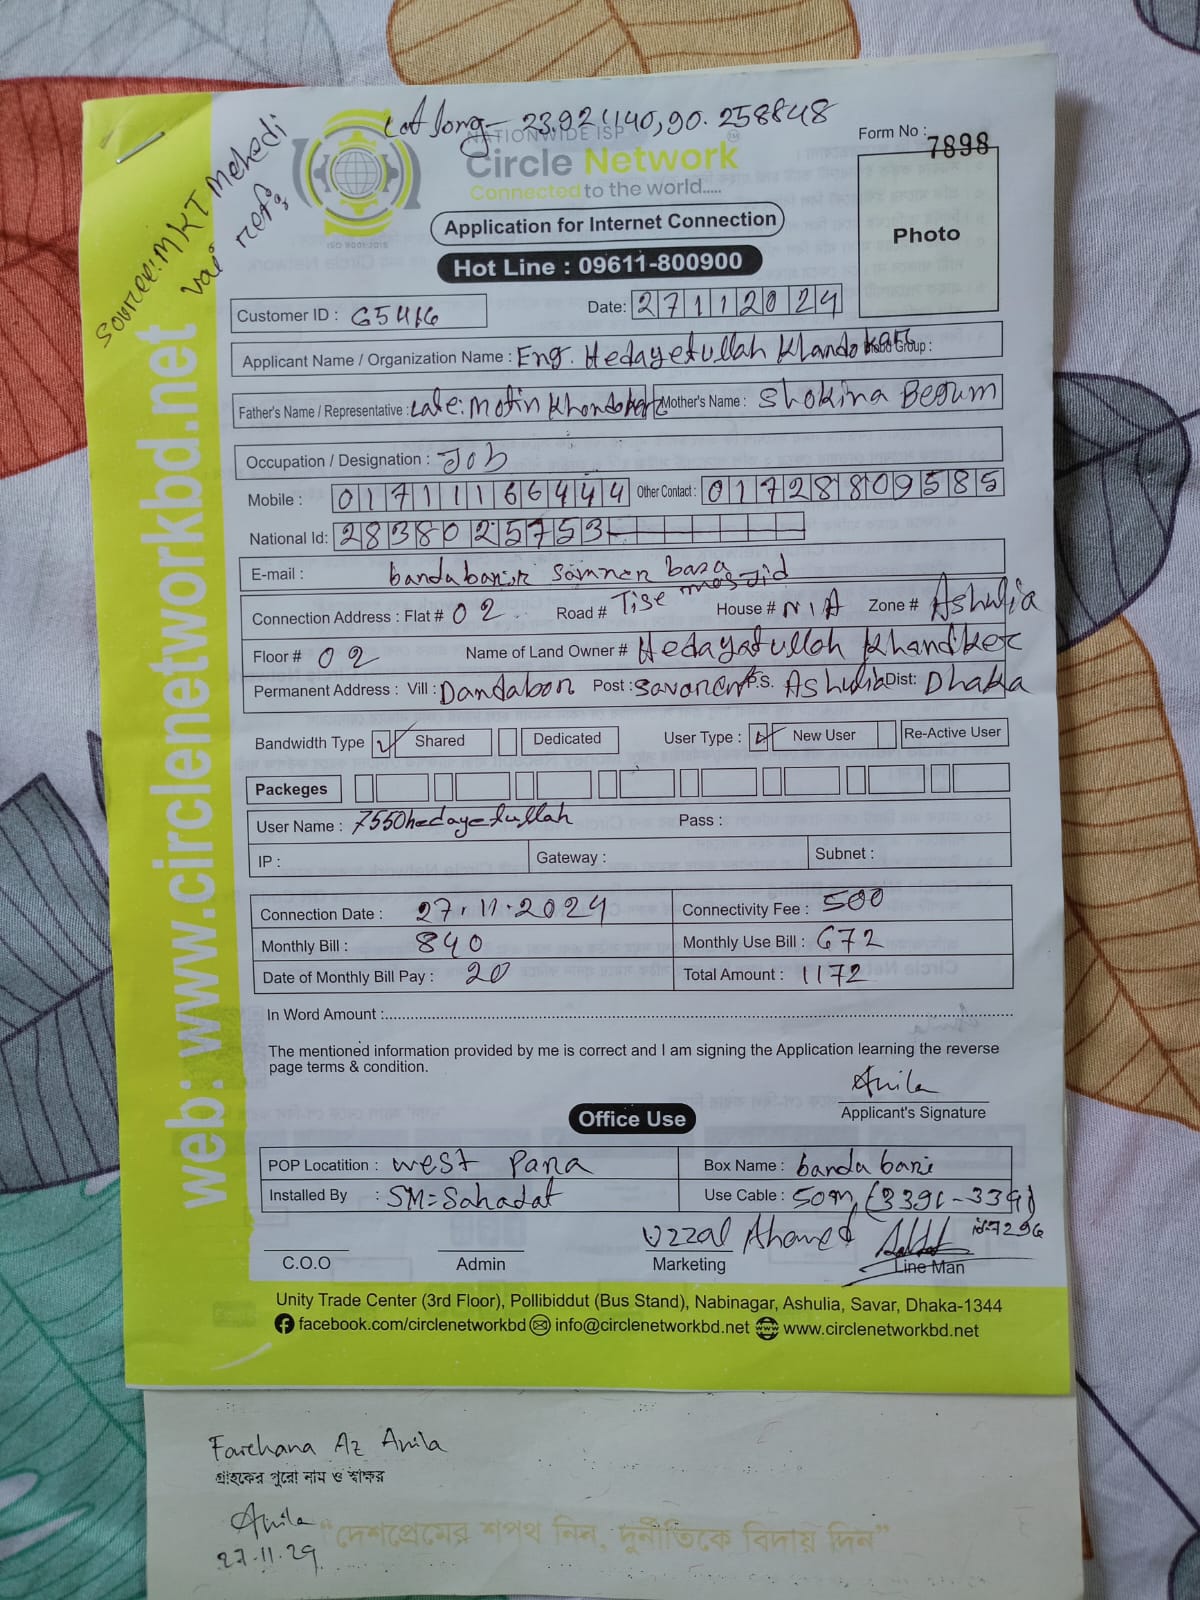 Lat long- 23.924140,90.258848
Source: MKT Mehedi
vai ref:
NATIONWIDE ISP
Circle Network
Connected to the world.....
ISO 9001:2015
Form No : 7898
Photo
Application for Internet Connection
Hot Line : 09611-800900
Customer ID : 65416
Date: 27112024
Applicant Name / Organization Name : Eng. Hedayetullah Khandokar Blood Group :
Father's Name / Representative : Late: Motin Khondokar Mother's Name : Shokina Begum
Occupation / Designation : Job
Mobile : 01711166444 Other Contact : 01728809585
National Id: 2838025753
E-mail :
bandabari samner basa
Connection Address : Flat # 02 Road # Tise mosjid House # N/A Zone # Ashulia
Floor # 02 Name of Land Owner # Hedayatullah Khandker
Permanent Address : Vill : Dandabor Post : Savar P.S. Ashulia Dist: Dhaka
Bandwidth Type Shared Dedicated User Type : New User Re-Active User
Packeges
User Name : 7550hedayetullah Pass :
IP : Gateway : Subnet :
Connection Date : 27.11.2024 Connectivity Fee : 500
Monthly Bill : 840 Monthly Use Bill : 672
Date of Monthly Bill Pay : 20 Total Amount : 1172
In Word Amount :
The mentioned information provided by me is correct and I am signing the Application learning the reverse
page terms & condition.
Anila
Applicant's Signature
Office Use
POP Locatition : West Para Box Name : banda bari
Installed By : SM=Sahadat Use Cable : 50m, (3391-3341)
Uzzal Ahamed id:7296
C.O.O Admin Marketing Line Man
Unity Trade Center (3rd Floor), Pollibiddut (Bus Stand), Nabinagar, Ashulia, Savar, Dhaka-1344
facebook.com/circlenetworkbd info@circlenetworkbd.net www.circlenetworkbd.net
web: www.circlenetworkbd.net
Farehana Az Anila
গ্রাহকের পুরো নাম ও স্বাক্ষর
Anila
27.11.24
“দেশপ্রেমের শপথ নিন, দুর্নীতিকে বিদায় দিন”